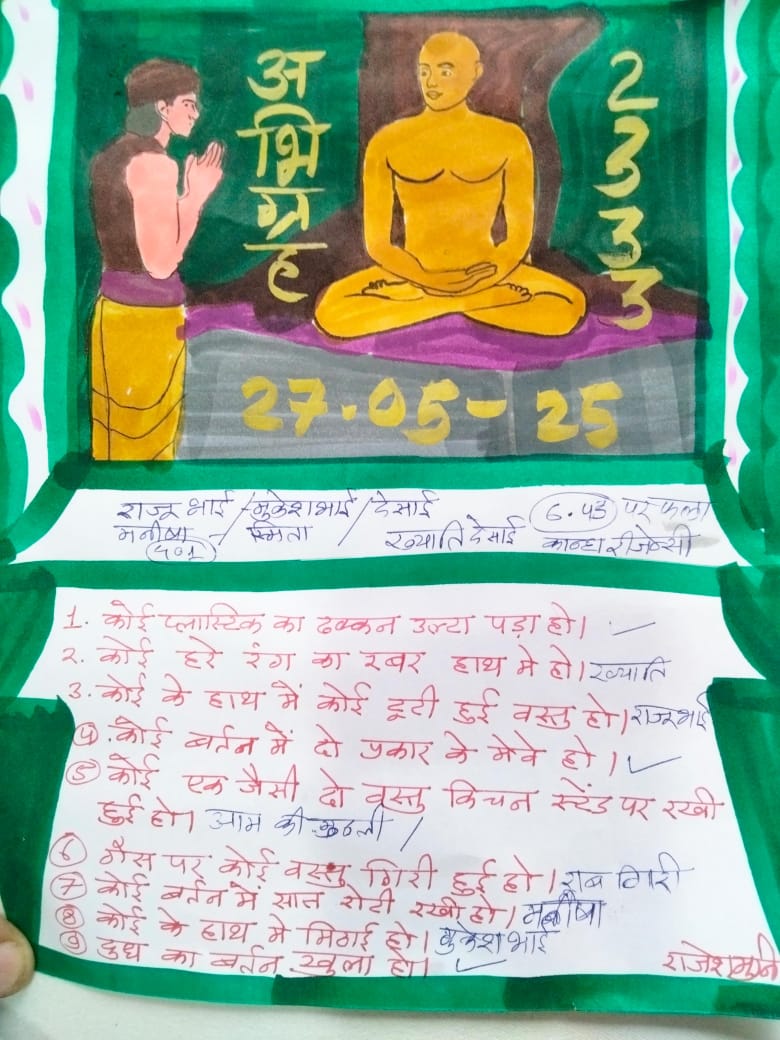 अभिग्रह
2333
27.05-25
राजू भाई / मुकेशभाई / देसाई 6.43 पर फला
मनीषा / स्मिता / ख्याति देसाई कान्हा रीजेन्सी
401
1. कोई प्लास्टिक का ढक्कन उल्टा पड़ा हो। ✓
2. कोई हरे रंग का रबर हाथ मे हो। ख्याति
3. कोई के हाथ में कोई टूटी हुई वस्तु हो। राजूभाई
4. कोई बर्तन में दो प्रकार के मेवे हो। ✓
5 कोई एक जैसी दो वस्तु किचन स्टेंड पर रखी
हुई हो। आम की गुठली /
6 गैस पर कोई वस्तु गिरी हुई हो। राब गिरी
7 कोई बर्तन में सात रोटी रखी हो। मनीषा
8 कोई के हाथ मे मिठाई हो। मुकेशभाई
9 दुध का बर्तन खुला हो। ✓
राजेशमुनि